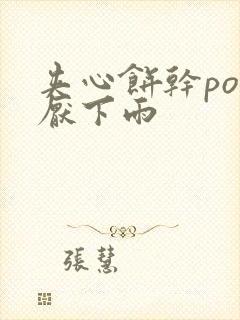 失心餅幹po
厭下雨
張慧